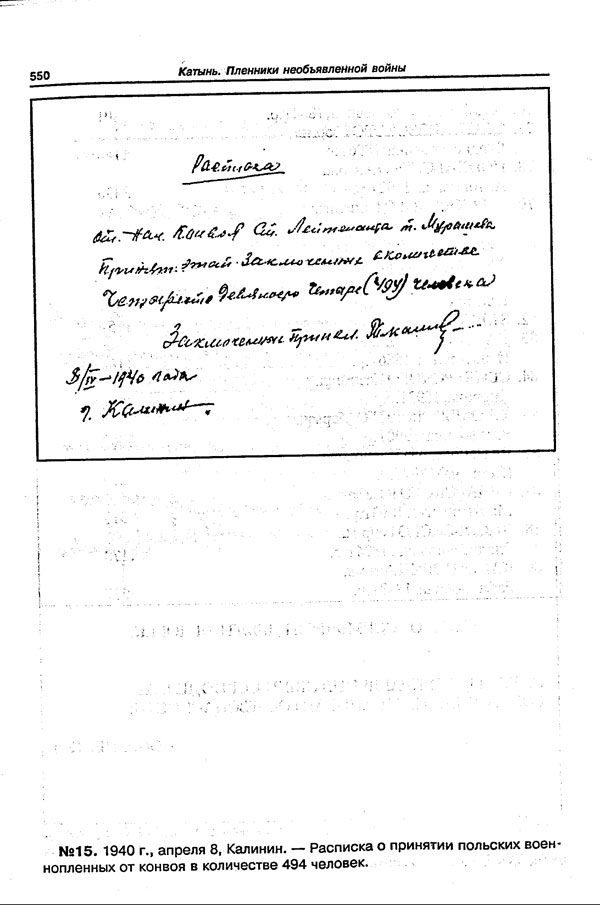 550
Катынь. Пленники необъявленной войны
Расписка
От. Нач. Конвоя Ст. Лейтенанта т. Мурашева
Принят. этап Заключенных в количестве
Четыреста Девяносто Четыре (494) человека
Заключенных Принял.
8/IV–1940 года
г. Калинин.
№15. 1940 г., апреля 8, Калинин. — Расписка о принятии польских воен-
нопленных от конвоя в количестве 494 человек.